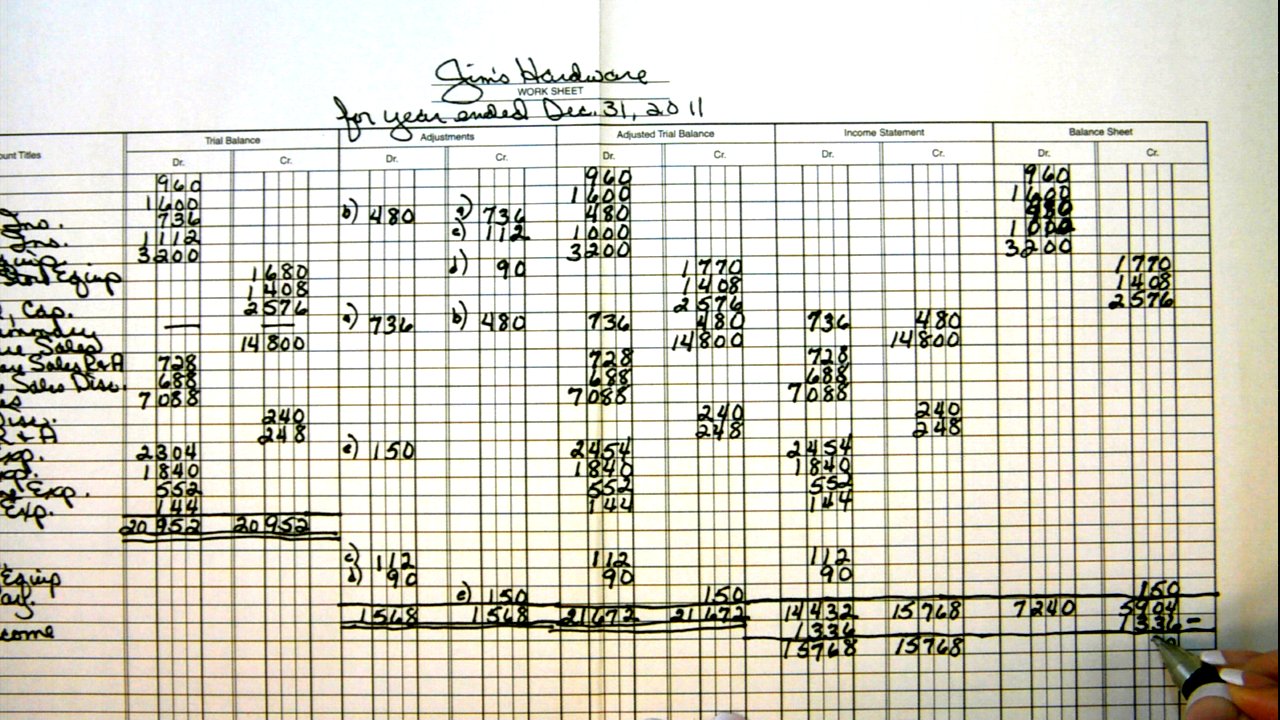 Jim's Hardware
WORK SHEET
for year ended Dec. 31, 2011
ount Titles Trial Balance Adjustments Adjusted Trial Balance Income Statement Balance Sheet
Dr. Cr. Dr. Cr. Dr. Cr. Dr. Cr. Dr. Cr.
960 960 960
1600 1600 1600
Ins. 736 b) 480 a) 736 480 480
Ins. 1112 c) 112 1000 1000
Equip. 3200 3200 3200
Store Equip 1680 d) 90 1770 1770
1408 1408 1408
, Cap. 2576 2576 2576
— — a) 736 b) 480 736 480 736 480
Sales 14800 14800 14800
Sales R & A 728 728 728
Sales Disc. 688 688 688
es 7088 7088 7088
Disc. 240 240 240
R & A 248 248 248
Exp. 2304 e) 150 2454 2454
Exp. 1840 1840 1840
Exp. 552 552 552
Exp. 144 144 144
20952 20952
c) 112 112 112
Equip d) 90 90 90
ay. e) 150 150 150
1568 1568 21672 21672 14432 15768 7240 5904
come 1336 1336 -
15768 15768